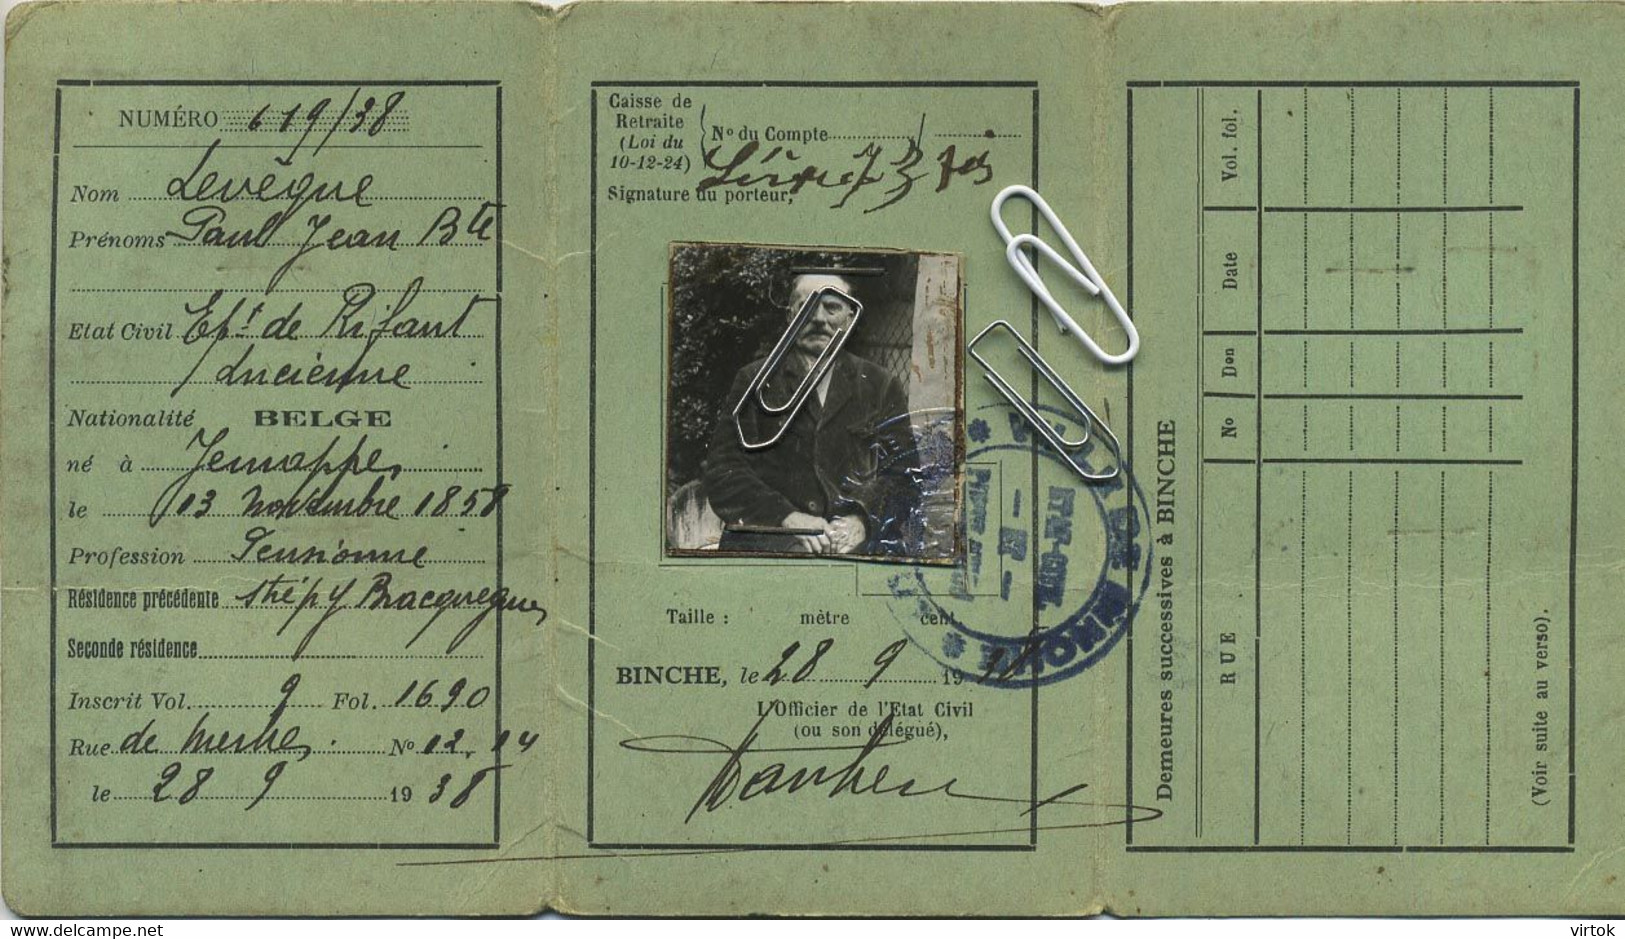 NUMÉRO 619/38
Nom Levêque
Prénoms Paul Jean Bte
Etat Civil Ept de Rifaut
Lucienne
Nationalité BELGE
né à Jemappes
le 13 Novembre 1858
Profession Pensionné
Résidence précédente Strépy Bracquegnies
Seconde résidence
Inscrit Vol. 9 Fol. 1690
Rue de Merbes No 12. 14
le 28 9 1938
Caisse de
Retraite
(Loi du
10-12-24)
No du Compte
Signature du porteur,
Taille : mètre cent.
BINCHE, le 28 9 1938
L'Officier de l'Etat Civil
(ou son délégué),
VILLE DE BINCHE
ETAT-CIVIL
Demeures successives à BINCHE
RUE No Don Date Vol. fol.
(Voir suite au verso).
delcampe.net
virtok